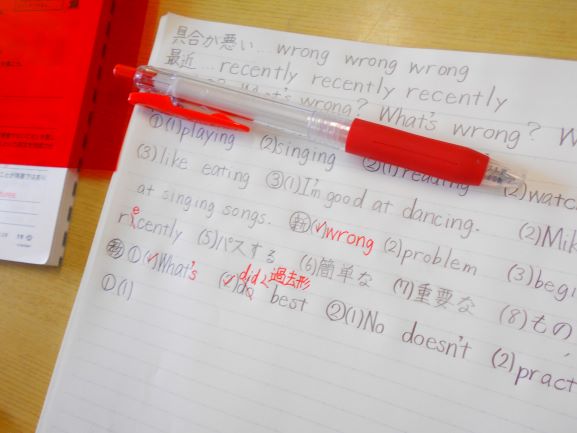 具合が悪い… wrong wrong wrong
最近… recently recently recently
What's wrong? What's wrong? W
①(1)playing (2)singing ②(1)reading (2)watc
(3)like eating ③(1)I'm good at dancing. (2)Mik
at singing songs. (1)wrong (2)problem (3)begi
recently (5)パスする (6)簡単な (7)重要な (8)もの
①(1)What's (2)do best did 過去形 ②(1)No doesn't (2)pract
①(1)